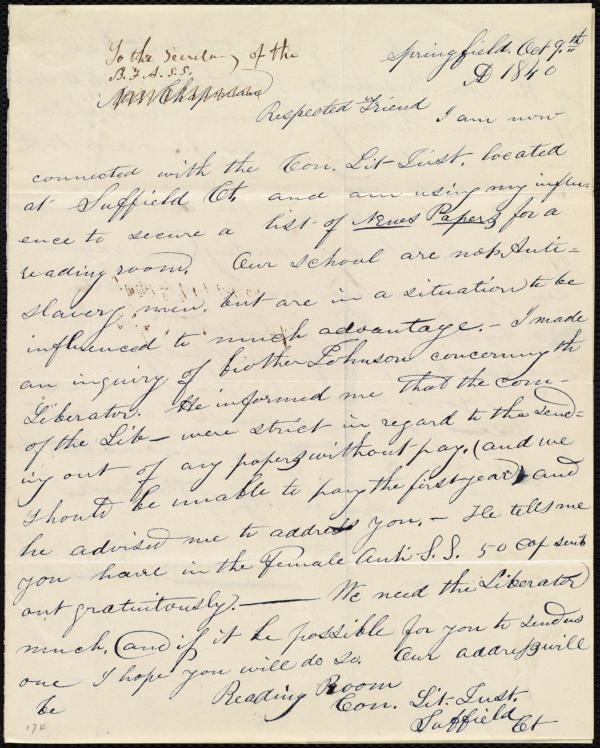 To the Secretary of the
B. F. A. S. S.
Springfield. Oct 9.th
AD 1840
Respected Friend
I am now
connected with the Con. Lit. Inst. located
at Suffield Ct. and am using my influ-
ence to secure a list of News Papers for a
reading room. Our school are not Anti-
slavery men. but are in a situation to be
influenced to much advantage. - I made
an inquiry of brother Johnson concerning th
Liberator. He informed me that the com-
of the Lib- were strict in regard to the send-
ing out of any papers without pay. (and we
should be unable to pay the first year) and
he advised me to address you. - He tells me
you have in the Female Anti-S. S. 50 cop sent
out gratuitously. - We need the Liberator
much, (and if it be possible for you to send us
one I hope you will do so. Our address will
be Reading Room
Con. Lit. Inst.
Suffield
Ct